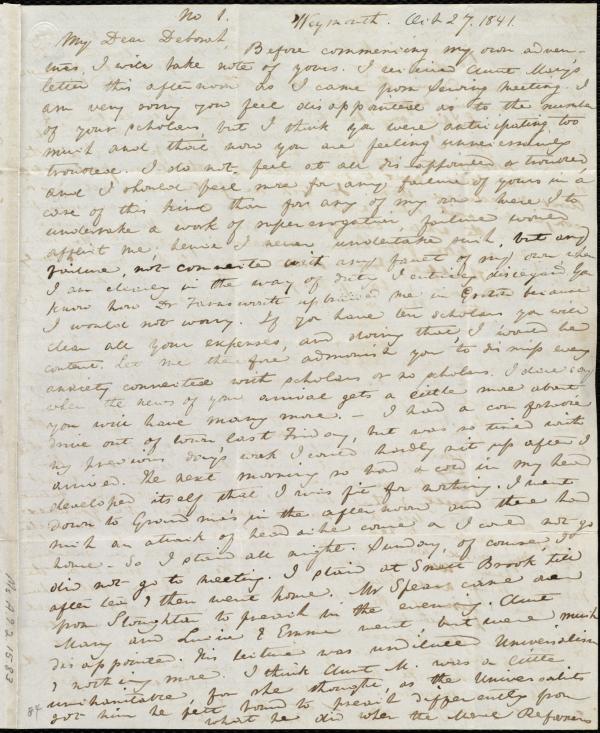 No 1. Weymouth. Oct 27. 1841.
My Dear Deborah,
Before commencing my own adven-
tures I will take note of yours. I received Aunt Mary's
letter this afternoon as I came from Sewing meeting. I
am very sorry you feel disappointed as to the number
of your scholars, but I think you were anticipating too
much and that now you are feeling unnecessarily
troubled. I do not feel at all disappointed or troubled,
and I should feel more for any failure of yours in a
case of this kind than for any of my own. Were I to
undertake a work of supererogation, failure would
afflict me, hence I never undertake such, but any
failure, not connected with any fault of my own when
I am clearly in the way of duty I entirely disregard. You
know how Dr Farnsworth upbraided me in Groton because
I would not worry. If you have ten scholars you will
clear all your expenses, and doing that, I would be
content. Let me therefore admonish you to dismiss every
anxiety connected with scholars or no scholars. I dare say
when the news of your arrival gets a little more about
you will have many more. — I had a comfortable
drive out of town last Friday, but was so tired with
my previous day's work I could hardly sit up after I
arrived. The next morning so bad a cold in my head
developed itself that I was fit for nothing. I went
down to Grandma's in the afternoon and there had
such an attack of head ache come on I could not go
home. So I staid all night. Sunday, of course, I
did not go to meeting. I staid at Small Brook till
after tea & then went home. Mr Spear came over
from Stoughton to preach in the evening. Aunt
Mary and Lucia & Emma went, but were much
disappointed. His lecture was undiluted Universalism
& nothing more. I think Aunt M. was a little
uncharitable, for she thought, as the Universalists
got him he felt bound to preach differently from
what he did when the Moral Reformers
Ms.A.9.2.15.83
84